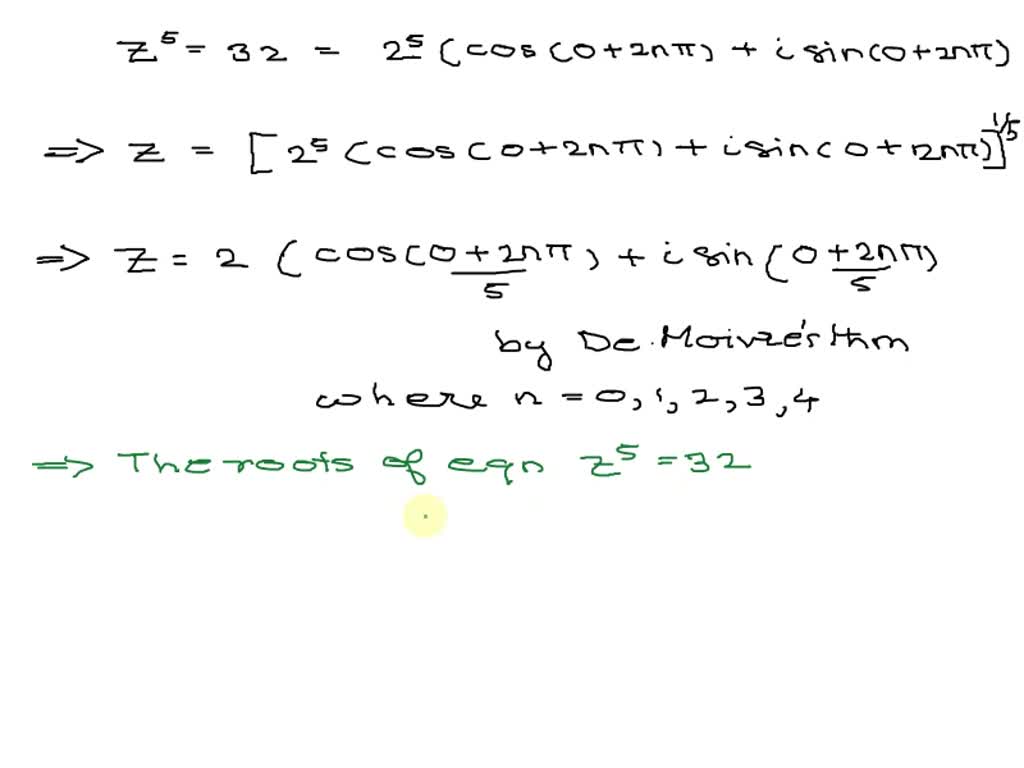 z⁵ = 32 = 2⁵ (cos(0+2nπ) + i sin(0+2nπ)
=> z = [2⁵ (cos(0+2nπ) + i sin(0+2nπ)]^1/5
=> z = 2 (cos(0+2nπ)/5 + i sin(0+2nπ)/5
by De.Moivre's thm
where n = 0, 1, 2, 3, 4
=> The roots of eqn z⁵ = 32